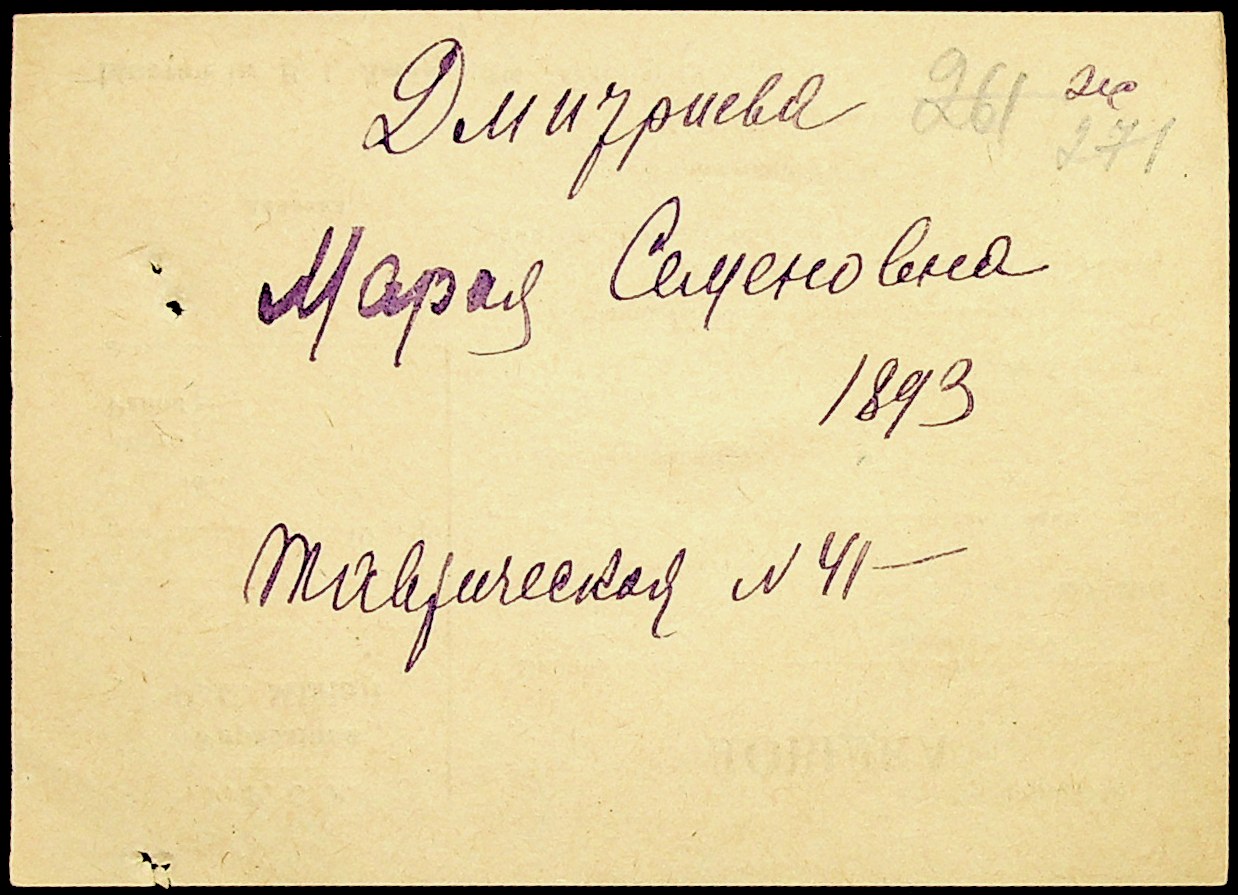 Дмитриева 261
271
Мария Семеновна
1893
Таврическая N 41 —